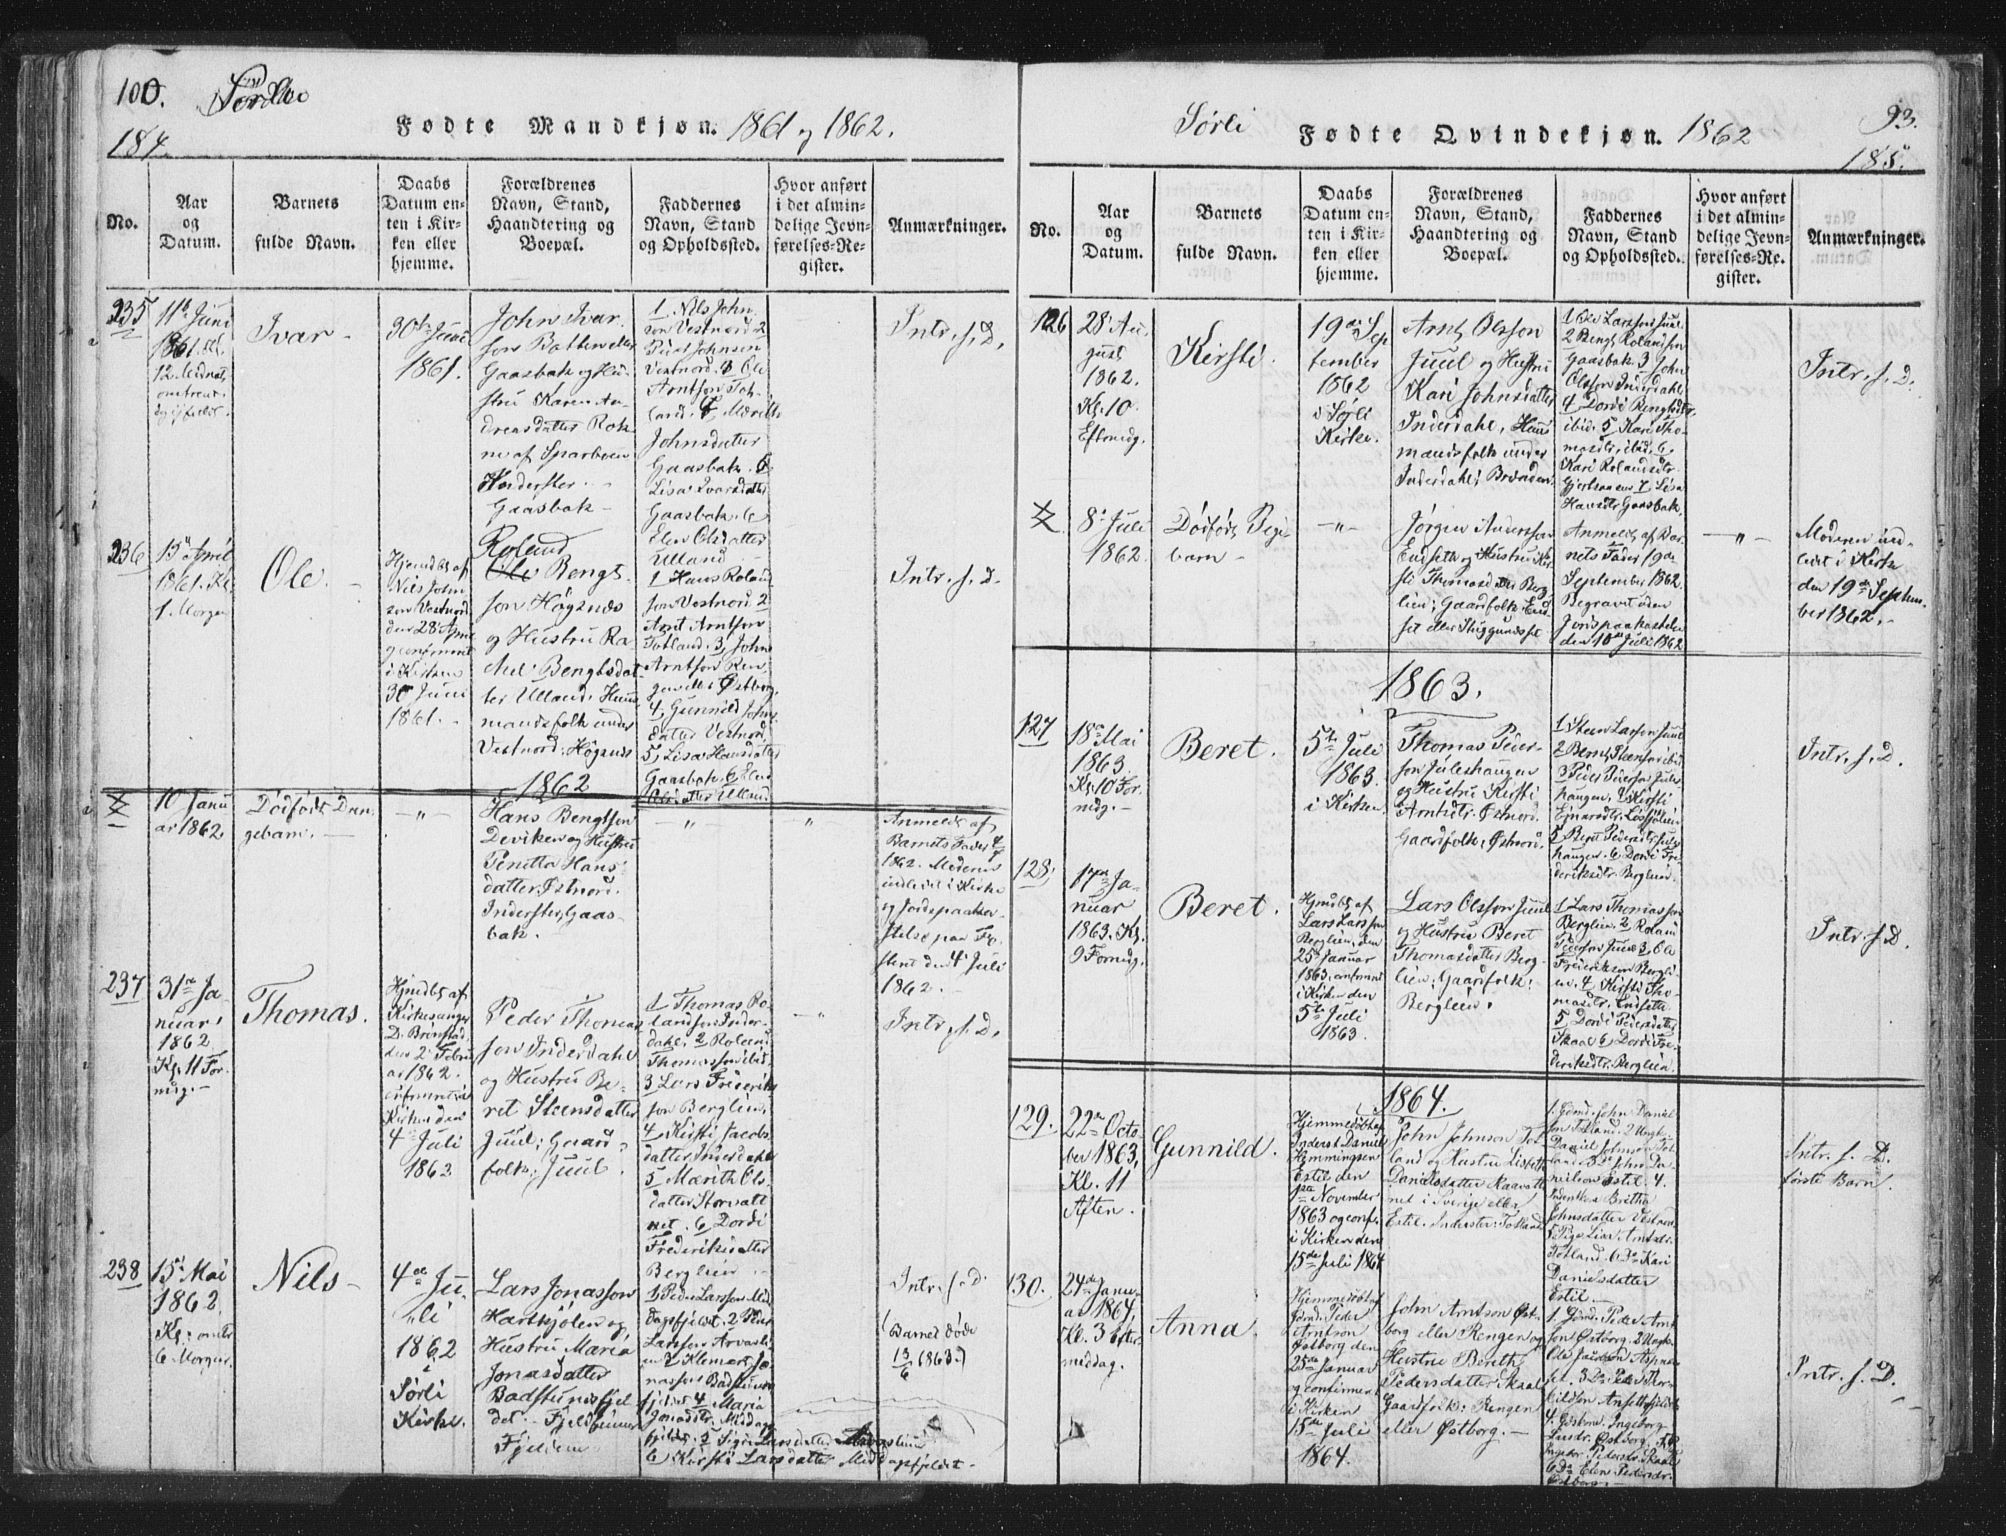 100.
Sørli
184.
Fødte Mandkjøn. 1861 og 1862.
No.
Aar
og
Datum.
Barnets
fulde Navn.
Daabs
Datum en-
ten i Kir-
ken eller
hjemme.
Forældrenes
Navn, Stand,
Haandtering og
Boepæl.
Faddernes
Navn, Stand
og Opholdssted.
Hvor anført
i det almin-
delige Jevn-
førelses-Re-
gister.
Anmærkninger.
235
11te Juni
1861. Kl.
12. Midnat,
Ivar
30te Juni
1861.
John Ivar
son
Gaasbak og Hu-
stru Karen An-
dreasdatter
af Sparboen
Gaasbak
1 Nils John
son Vestnord 2
Johnsen
Vestnord. 3 Ole
Arntson Tot-
land. 4
Johnsdatter
Gaasbak. 5
Lisa Ivarsdatter
Gaasbak. 6
Elen Olsdatter
Ulland
Intr. f. D.
236
15 April
1861. Kl.
1. Morgen
Ole.
Hjemdbt af
Nils John
son Vestnord
den 28 April
i Kirken
30 Juni
1861.
Roland
Bengt-
son Högsnes
og Hustru Ra-
hel Bengtsdat-
ter Ulland, Huus
mandsfolk under
Vestnord: Högsnes
1 Hans Roland
son Vestnord 2
Arnt Arntson
Totland. 3, John
Arntson Ren
gen eller Østborg,
4, Gunnild Johns
datter Vestnord,
5, Lisa Hansdatter
Gaasbak. 6 Elen
Olsdatter Ulland
Intr. f. D.
1862
10 Janu
ar 1862.
Dödfödt Dren
gebarn.
-"-
Hans Bengtson
Deviken og Hustru
Hans
datter Østnord.
Inderster, Gaas-
bak.
"
"
Anmeldt af
Barnets Fader
1862. Moderen
indledet i Kirke
og Jordspaakas-
telse paa
den 4 Juli
1862.
237
31te Ja-
nuar
1862
Kl. 11 For
mdg.
Thomas.
Hjmdbt af
Kirkesanger
D. Brönstad
den 2 Febru
ar 1862.
confirmert i
Kirken den
4de Juli
1862
Peder Thomas
son Inderdahl
og Hustru Be-
ret Steensdatter
Juul; Gaard-
folk: Juul.
1 Thomas Ro-
landson Inder-
dahl. 2 Roland
Thomasson ibid.
3 Lars Frederik
son Berglien,
4 Kirsti Jacobs
datter Inderdahl
5 Marith Ols-
datter Storvatt
net. 6 Dordi
Frederiksdatter
Berglien
"
Intr. f. D.
238
15 Mai
1862
Kl. omtr
6 Morgen
Nils
4de Ju-
li
1862
i
Sörli
Kirke.
Lars Jonasson
Hartkjölen og
Hustru Maria
Jonasdatter
Badstunesfjel
det.
Fjeldem
1 Peder Larsson Mid
dagsfjeldet. 2 Peder
Larsson Arvasli
3 Klemet Jo
nasson Badstunes
fjeldet 4 Maria
Jonasdtr. Middags
fjeldet. 5 Sigri Larsdatter Arvaslien
6 Kirsti Larsdatter Middagsfjeldet.
Intr. f. D.
(Barnet döde
13/6 1863.)
93.
Sörli
Fødte Qvindekjøn. 1862
185.
No.
Aar
og
Datum.
Barnets
fulde Navn.
Daabs
Datum en-
ten i Kir-
ken eller
hjemme.
Forældrenes
Navn, Stand,
Haandtering og
Boepæl.
Faddernes
Navn, Stand
og Opholdssted.
Hvor anført
i det almin-
delige Jevn-
førelses-Re-
gister.
Anmærkninger.
126
28 Au-
gust
1862.
Kl. 10.
Eftmdg.
Kirsti.
19de Sep
tember
1862
i Sörli
Kirke.
Arnt Olsson
Juul og Hustru
Kari Johnsdatter
Inderdahl, Huus
mandsfolk under
Inderdahl; Brænden.
1 Ole Larsson Juul
2 Bengt Rolandson
Gaasbak. 3 John
Olsson Inderdahl
4 Dordi Bengtsdtr.
ibid. 5 Kari Tho-
masdtr, ibid. 6
Kari Rolandsdtr.
7 Lisa
Hansdtr Gaasbak.
Intr. f. D.
8 Juli
1862.
Dödfödt Pige
barn
-"-
Jörgen Anderson
Endset og Hustru Kir-
sti Thomasdatter Berg-
lien; Gaardfolk: End
set eller Stuggunesset
Anmeldt af Bar
nets Fader 19de
September 1862.
Begravet uden
Jordspaakastelse
den 10de Juli 1862
-"-
Moderen ind-
ledet i Kirke
den 19de Septem
ber 1862.
1863.
127
18de Mai
1863.
Kl. 10 For
mdg.
Beret.
5te Juli
1863.
i Kirken
Thomas Peder-
son Juleshaugen
og Hustru Kirsti
Arntsdtr. Østnord.
Gaardfolk: Østnord.
1 Steen Larsson Juul
2 Bernt Steenson ibid.
3 Peder Pederson Jules
haugen. 4 Kirsti
Ejnarsdtr.
5 Beret Pedersdtr. Jules
haugen. 6 Dordi Fre
deriksdtr. Berglien.
Intr. f. D.
128,
17de Ja-
nuar
1863. Kl.
9 Formdg.
Beret.
Hjmdbt af
Lars Larsson
Berglien, den
25 Januar
1863, confirmert
i Kirken den
5te Juli
1863.
Lars Olsson Juul
og Hustru Beret
Thomasdatter Berg-
lien; Gaardfolk:
Berglien.
1 Lars Thomasson
Berglien. 2 Roland
Pederson Juul 3. Ole
Frederikson Bergli-
en. 4 Kirsti Tho-
masdtr. Endset.
5 Dordi Pedersdatter
Skaal 6 Dordi Fre-
deriksdtr. Berglien.
Intr. f. D.
1864.
129.
22de Octo-
ber 1863,
Kl. 11
Aften.
Gunnild.
Hjemmedöbt af
Inderst Daniel
Hemmingsen
Estil den
1ste November
1863 og conf.
i Kirken den
15de Juli 1864
John Johnson Tot-
land og Hustru Lisbeth
Danielsdatter Kaarvatt
net i Sverige eller
Estil. Inderster: Totland
1. Gdmd. John Daniel
son Totland. 2 Ungk.
Daniel Johnson Tot-
land 3. Do John Da-
nielson Estil. 4.
Britha
Johnsdatter Vestnord
5 Pige Lisa Arntsdr.
Totland. 6 Do Kari
Danielsdatter
Estil.
Intr. f. D.
første Barn.
130.
24de Janu-
ar 1864
Kl. 3 Efter-
middag.
Anna.
Hjemmedöbt af
Gdmd. Peder
Arntson
Østborg den
25de Januar
og confirmert
i Kirken
15de Juli
1864.
John Arntson Øst-
borg eller Rengen og
Hustru Bereth
Pedersdatter Skaal
Gaardfolk: Rengen
eller Østborg.
1. Gdmd. Peder Arnt
son Østborg. 2 Ungk.
Ole Jacobson Aspnes-
set. 3 Do Peder Thor-
kildsen Ansettfjeldet
4. Gdkone Ingeborg
Larsdr. Østborg. 5 Do
Ingebor Pedersdr. Skaal
6 Do Elen Pedersdr.
Østborg.
Intr. f. D.